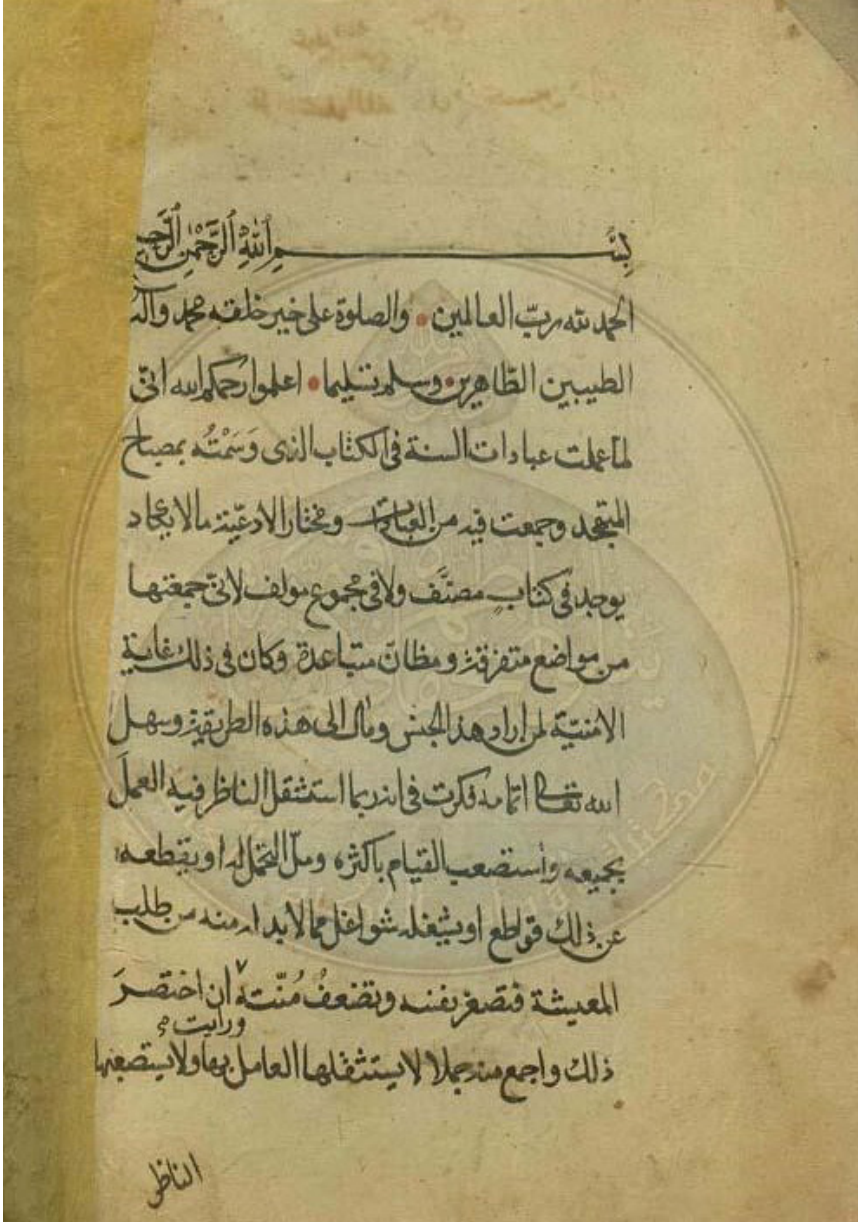 بِسْمِ اللهِ الرَّحْمٰنِ الرَّحِيمِ
الحمد لله ربّ العالمين والصلوة على خير خلقه محمد وآله
الطيبين الطّاهرين وسلم تسليما اعلموا رحمكم الله انّى
لما عملت عبادات السنة فى الكتاب الذى وَسَمْتُه بمصباح
المتهجد وجمعت فيه من العبادات ومختار الادعيّة مالا يكاد
يوجد فى كتابٍ مصنَّف ولا فى مجموع مولف لانّى جمعتها
من مواضع متفرقة ومظانّ متباعدة وكان فى ذلك غاية
الامنيّة لمن اراد هذا الجنس ومال الى هذه الطريقة وسهل
الله تعالى اتمامه فكرت فى انه ربما استثقل الناظر فيه العملَ
بجميعه واستصعب القيام باكثره وملّ التحمل له او يقطعه
عن ذلك قواطع او يشغله شواغل مما لابد له منه من طلب
المعيشة فتصغر نفسه وتضعفُ مُنّته ان اختصرَ
ورايت
ذلك واجمع منه جملا لا يستثقلها العامل بها ولا يستصعبها
الناظر